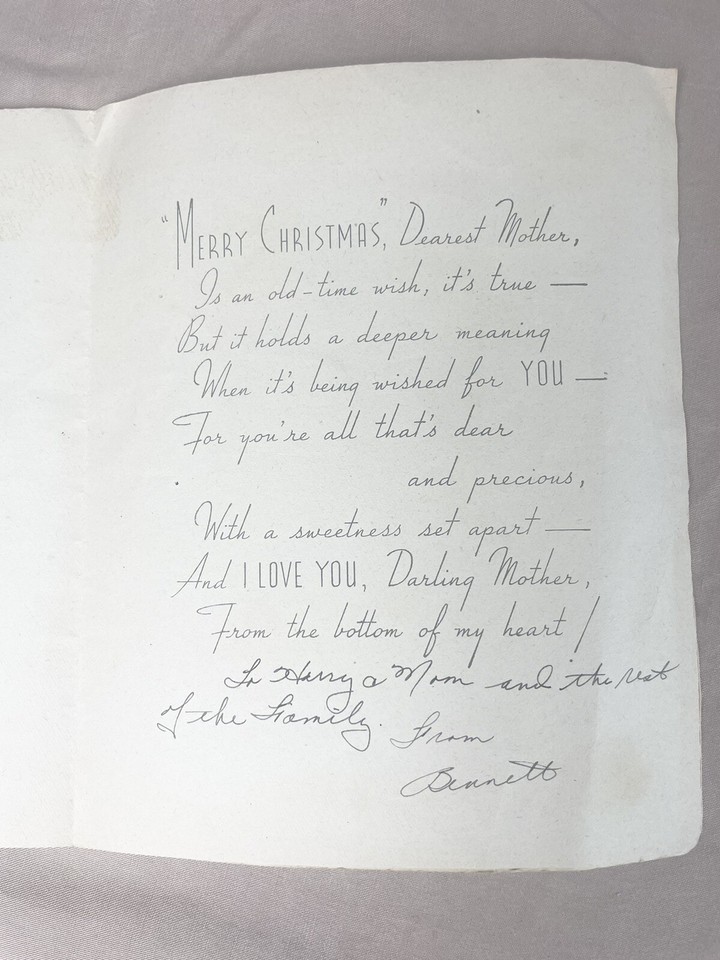 "MERRY CHRISTMAS", Dearest Mother,
Is an old-time wish, it's true —
But it holds a deeper meaning
When it's being wished for YOU —
For you're all that's dear
and precious,
With a sweetness set apart —
And I LOVE YOU, Darling Mother,
From the bottom of my heart!
To Harry & Mom and the rest
of the Family. From
Bennett